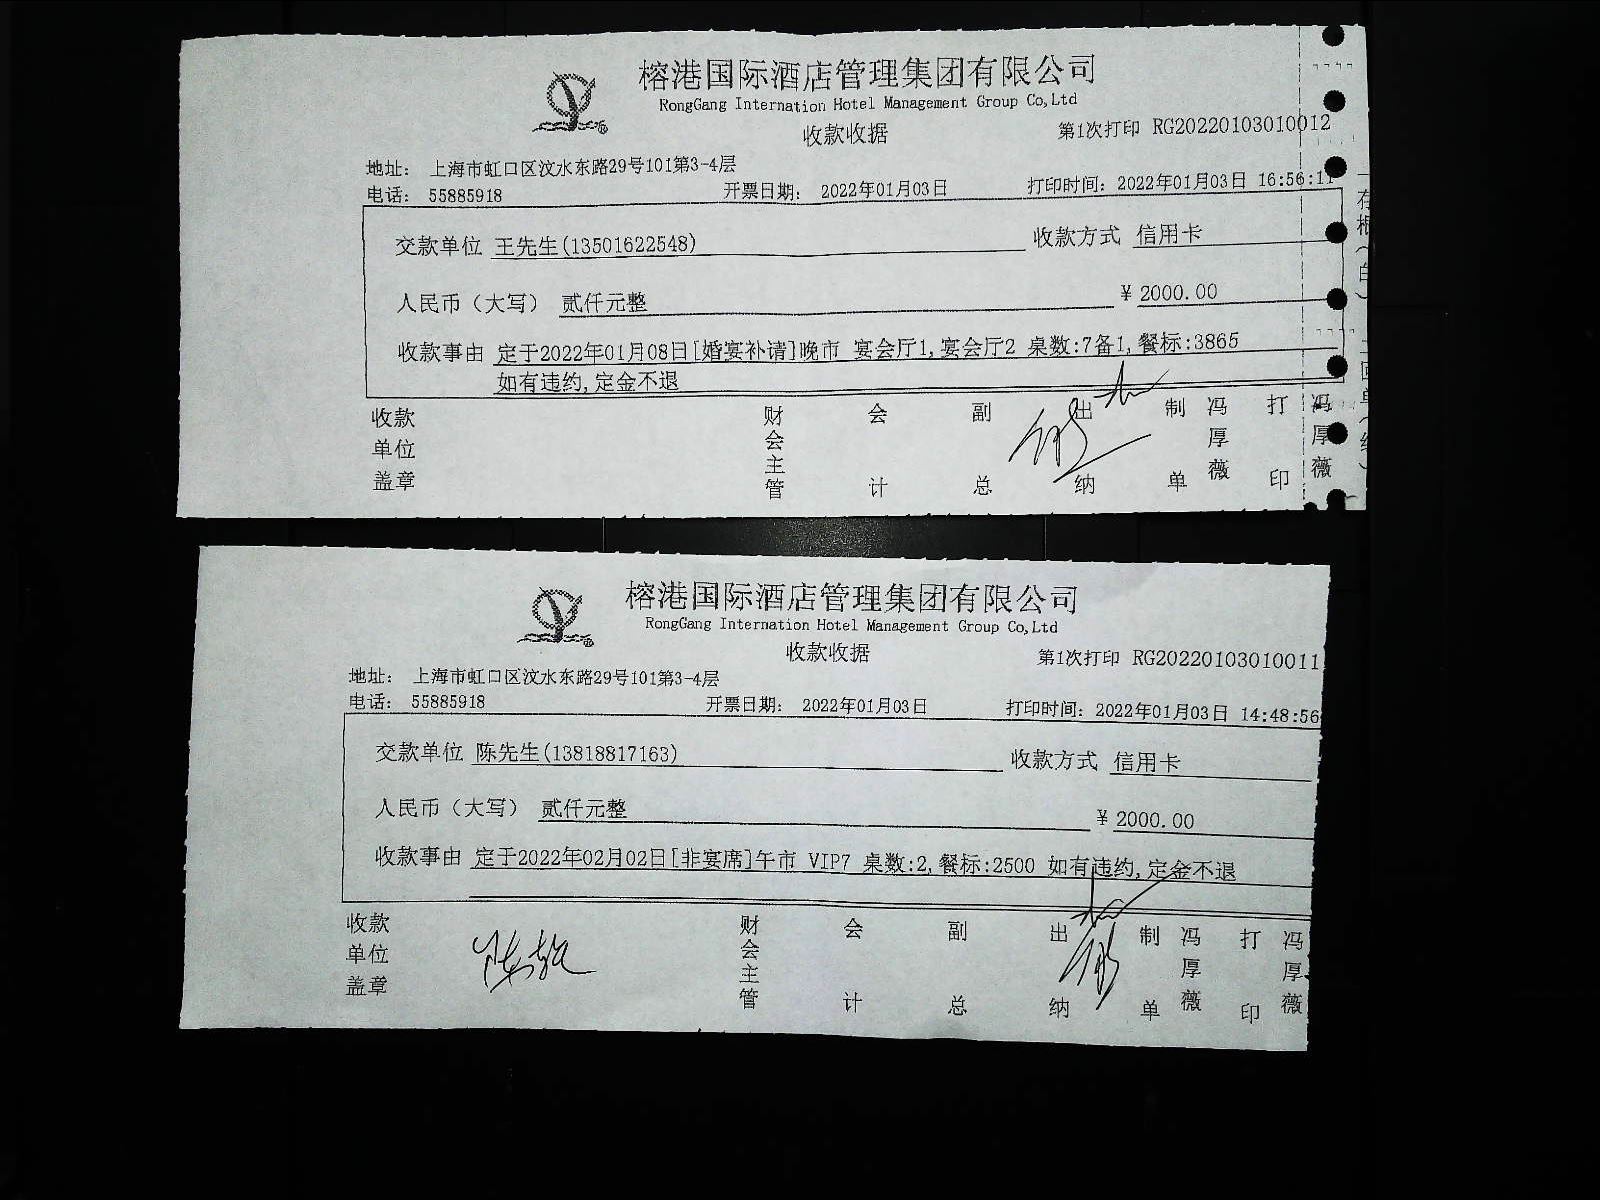 榕港国际酒店管理集团有限公司
RongGang Internation Hotel Management Group Co,Ltd
收款收据
第1次打印 RG20220103010012
地址： 上海市虹口区汶水东路29号101第3-4层
电话： 55885918 开票日期： 2022年01月03日 打印时间：2022年01月03日 16:56:11
交款单位 王先生(13501622548) 收款方式 信用卡
人民币（大写） 贰仟元整 ￥2000.00
收款事由 定于2022年01月08日[婚宴补请]晚市 宴会厅1,宴会厅2 桌数:7备1,餐标:3865
如有违约,定金不退
收款单位盖章 财会主管 会计 副总 出纳 制单 冯厚薇 打印 冯厚薇
一存根（白）二回单（红）
榕港国际酒店管理集团有限公司
RongGang Internation Hotel Management Group Co,Ltd
收款收据
第1次打印 RG20220103010011
地址： 上海市虹口区汶水东路29号101第3-4层
电话： 55885918 开票日期： 2022年01月03日 打印时间：2022年01月03日 14:48:56
交款单位 陈先生(13818817163) 收款方式 信用卡
人民币（大写） 贰仟元整 ￥2000.00
收款事由 定于2022年02月02日[非宴席]午市 VIP7 桌数:2,餐标:2500 如有违约,定金不退
收款单位盖章 财会主管 会计 副总 出纳 制单 冯厚薇 打印 冯厚薇